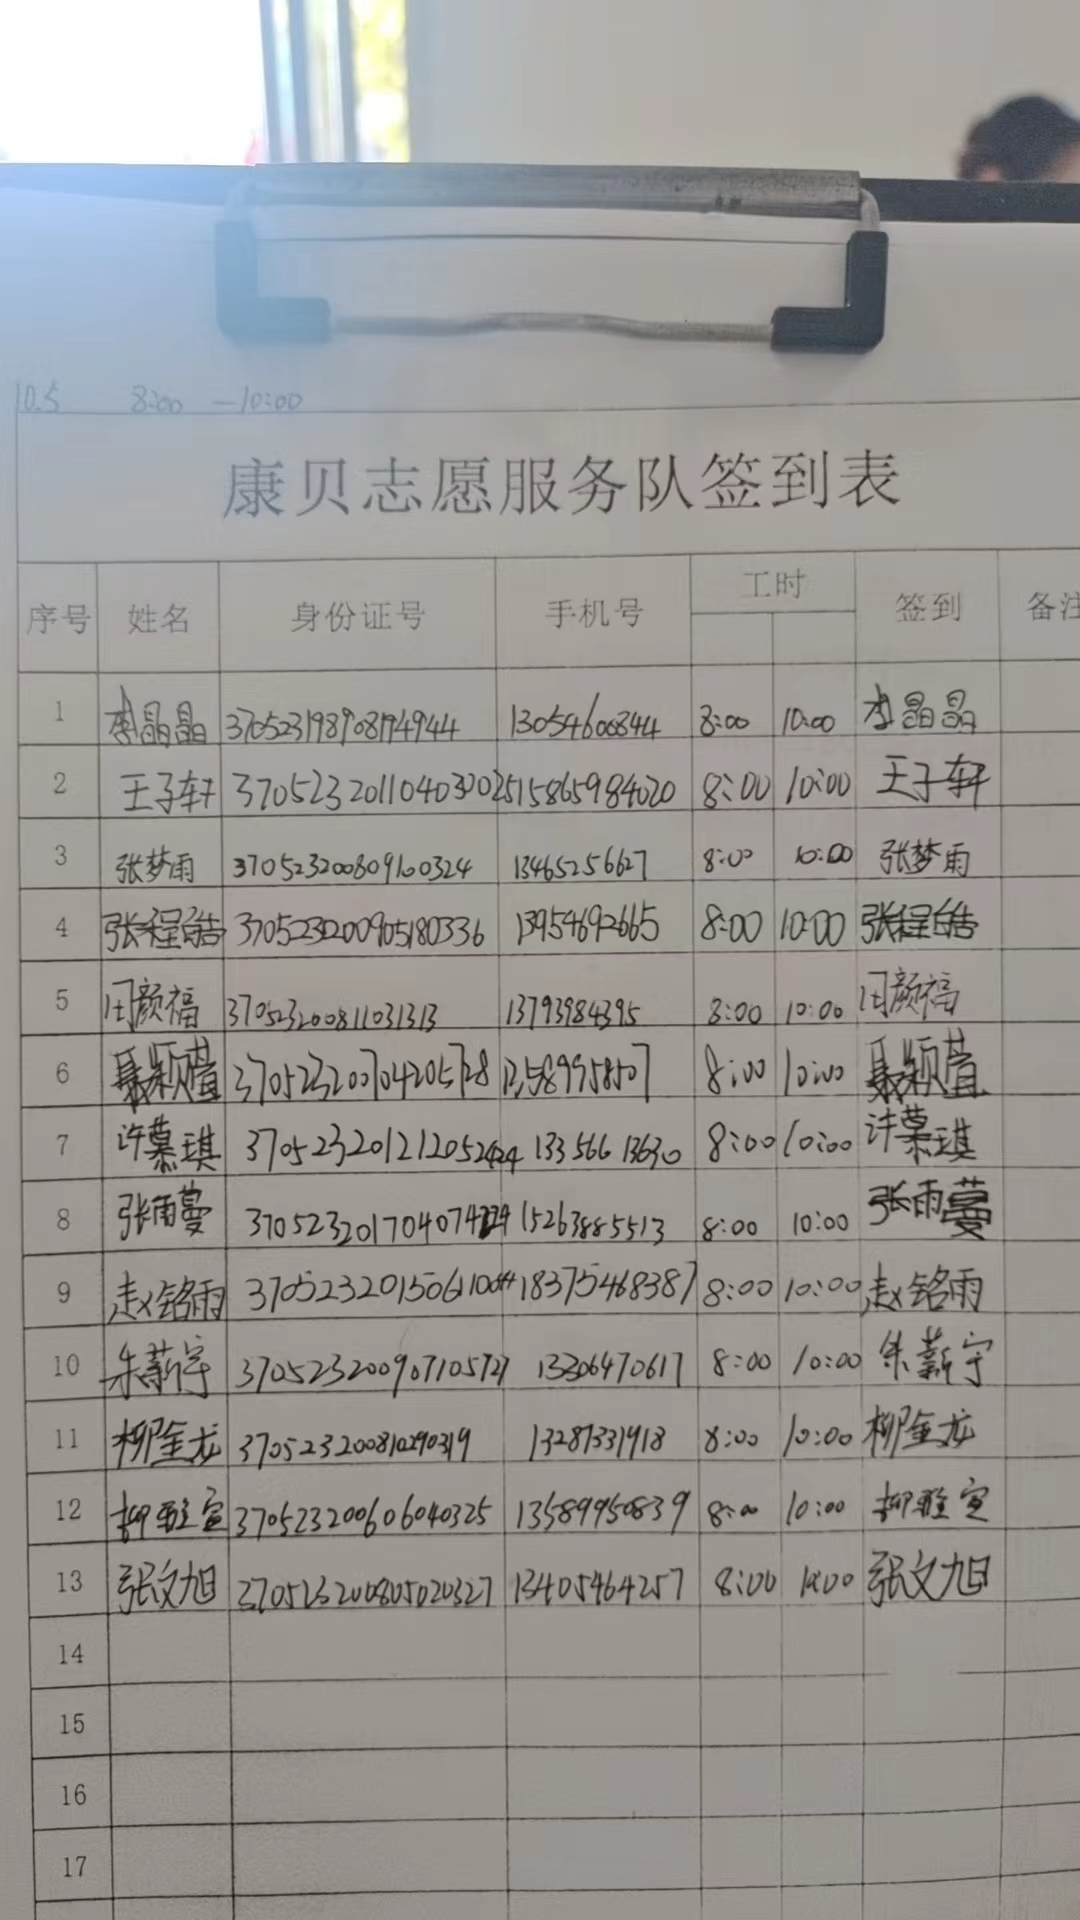 10.5 8:00 —10:00
康贝志愿服务队签到表
序号 姓名 身份证号 手机号 工时 签到 备注
1 李晶晶 13054600844 8:00 10:00 李晶晶
2 王子轩 15865984020 8:00 10:00 王子轩
3 张梦雨 370523200809100324 13465256627 8:00 10:00 张梦雨
4 张程皓 370523200905180336 13954692665 8:00 10:00 张程皓
5 闫颜福 370523200811031313 13793984395 8:00 10:00 闫颜福
6 聂颖萱 8:00 10:00 聂颖萱
7 许慕琪 370523201212052424 13356613630 8:00 10:00 许慕琪
8 张雨蔓 15263885513 8:00 10:00 张雨蔓
9 赵铭雨 18375468387 8:00 10:00 赵铭雨
10 朱薪宇 13306470617 8:00 10:00 朱薪宇
11 柳金龙 370523200810290319 13287331918 8:00 10:00 柳金龙
12 柳雅宣 370523200606040325 13589950839 8:00 10:00 柳雅宣
13 张文旭 370523200805020327 13405464257 8:00 10:00 张文旭
14
15
16
17